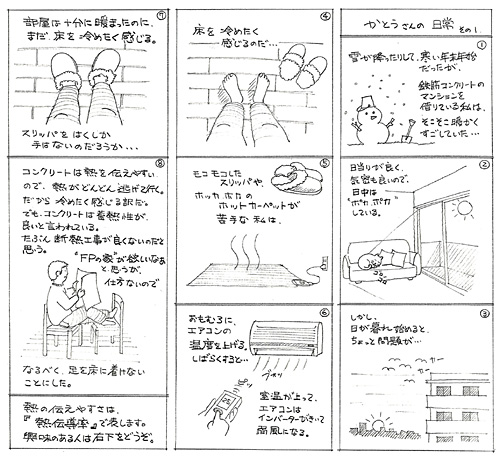 かとうさんの 日常 その1.
①
雪が降ったりして、寒い年末年始
だったが、
鉄筋コンクリートの
マンションを
借りている私は、
そこそこ暖かく
すごしていた…
②
日当りが良く、
気密も良いので、
日中は
"ポカ ポカ"
している。
③
しかし、
日が暮れ始めると、
ちょっと問題が…
カー
カー
④
床を冷めたく
感じるのだ…
⑤
モコモコした
スリッパや、
ホッカ ホカの
ホットカーペットが
苦手な私は、
⑥
おもむろに、
エアコンの
温度を上げる。
しばらくすると…
室温が上って、
エアコンは
インバーターがきいて
微風になる。
⑦
部屋は十分に暖まったのに、
まだ、床を冷めたく感じる。
スリッパをはくしか
手はないのだろうか…
⑧
コンクリートは熱を伝えやすい
ので、熱がどんどん逃げて行く。
だから冷めたく感じる訳だ。
でも、コンクリートは蓄熱性が、
良いと言われている。
たぶん断熱工事が良くないのだと
思う。
"FPの家"が欲しいなぁ
と思うが、
仕方ないので
なるべく、足を床に着けない
ことにした。
熱の伝えやすさは、
『熱伝導率』で表します。
興味のある人は右下をどうぞ。